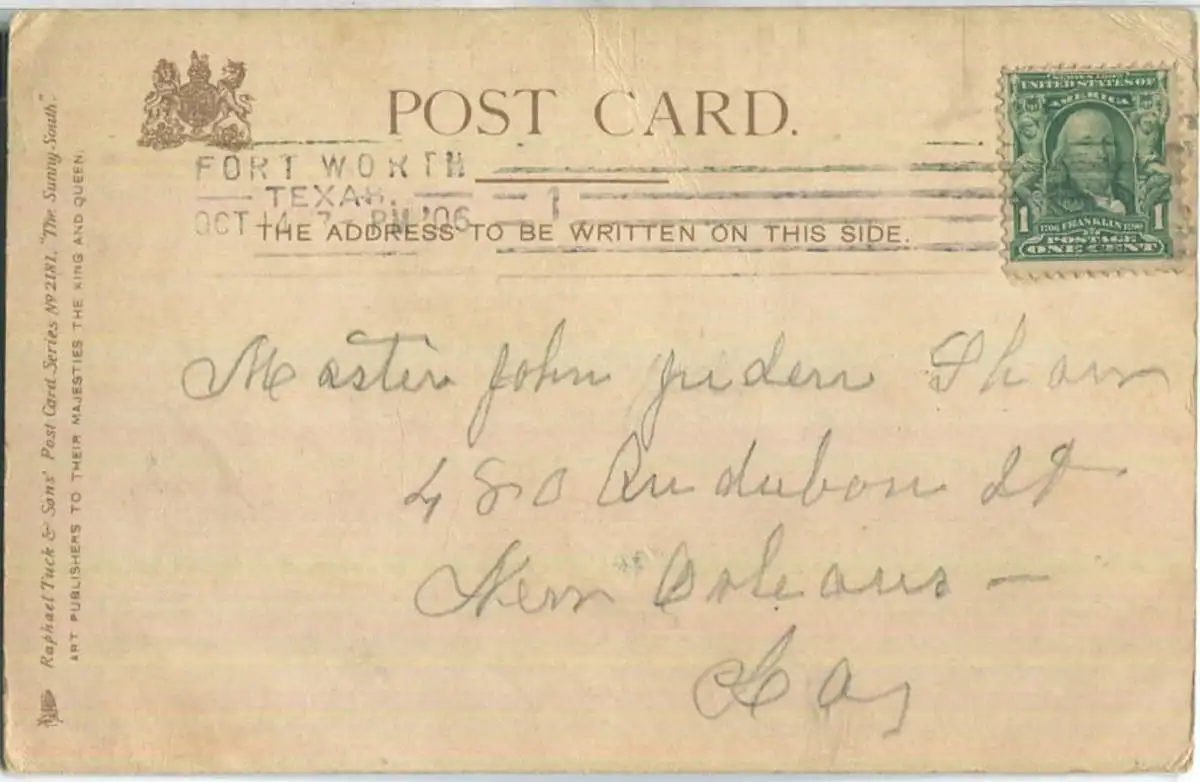 POST CARD.
FORT WORTH
TEXAS.
OCT 14 7 - PM '06
1
THE ADDRESS TO BE WRITTEN ON THIS SIDE.
SERIES 1902
UNITED STATES OF
AMERICA
1706 FRANKLIN 1790
1 1
POSTAGE
ONE CENT
Master John
480 Audubon St
New Orleans –
La,
Raphael Tuck & Sons' Post Card Series Nº 2181, "The Sunny South".
ART PUBLISHERS TO THEIR MAJESTIES THE KING AND QUEEN.